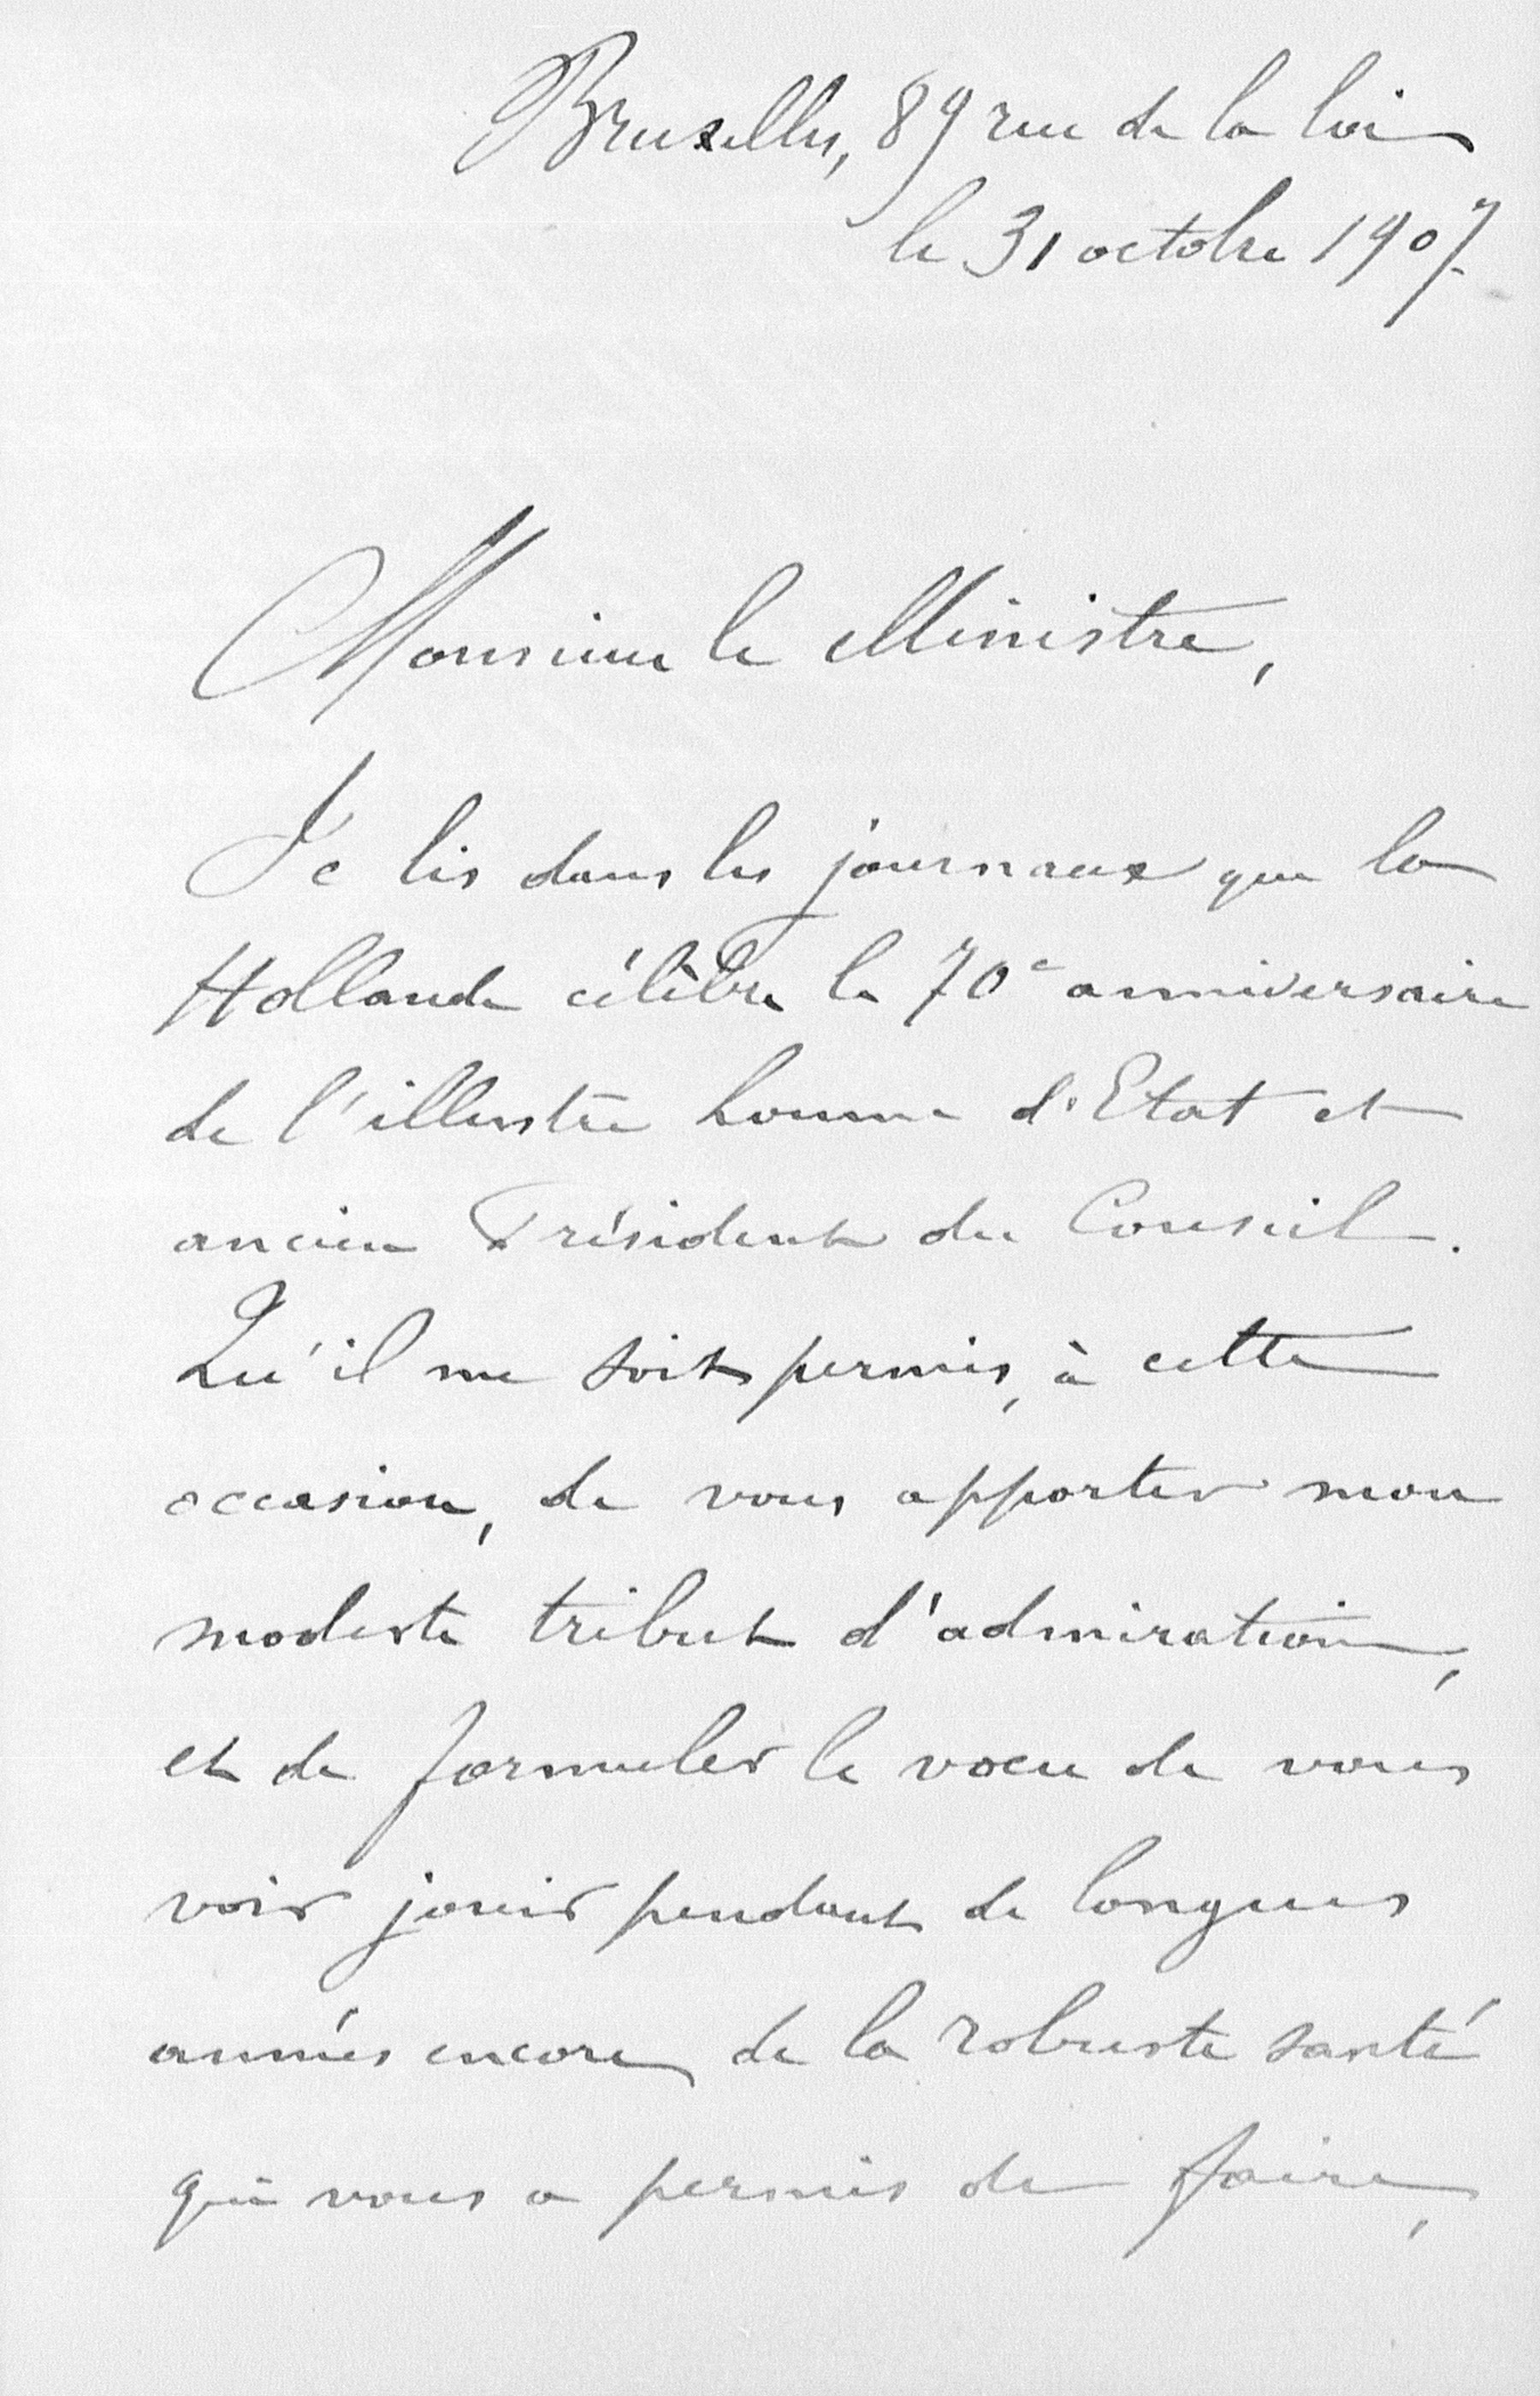 Bruxelles, 89 rue de la loi
le 31 octobre 1907.
Monsieur le Ministre,
Je lis dans les journaux que la
Hollande célèbre le 70e anniversaire
de l'illustre homme d'Etat et
ancien Président du Conseil.
Qu'il me soit permis, à cette
occasion, de vous apporter mon
modeste tribut d'admiration,
et de formuler le voeu de vous
voir jouir pendant de longues
années encore de la robuste santé
qui vous a permis de faire,